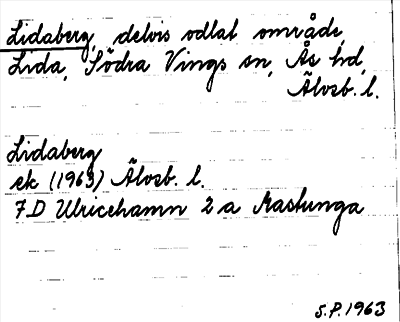 Lidaberg, delvis odlat område,
Lida, Södra Vings sn, Ås hd,
Älvsb. l.
Lidaberg
ek (1963) Älvsb. l.
7D Ulricehamn 2 a Rastunga
S.P. 1963